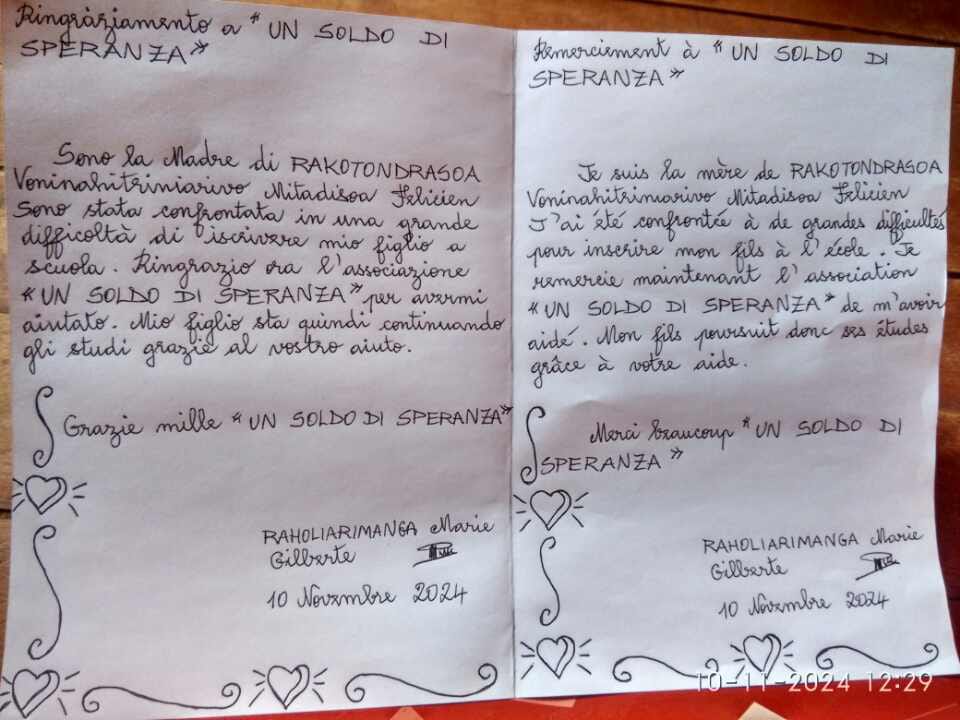 Ringràziamento a "UN SOLDO DI
SPERANZA"
Sono la Madre di RAKOTONDRASOA
Voninahitriniarivo Mitadisoa Felicien
Sono stata confrontata in una grande
difficoltà di iscrivere mio figlio a
scuola. Ringrazio ora l'associazione
"UN SOLDO DI SPERANZA" per avermi
aiutato. Mio figlio sta quindi continuando
gli studi grazie al vostro aiuto.
Grazie mille "UN SOLDO DI SPERANZA"
RAHOLIARIMANGA Marie
Gilberte
10 Novembre 2024
Remerciement à "UN SOLDO DI
SPERANZA"
Je suis la mère de RAKOTONDRASOA
Voninahitriniarivo Mitadisoa Felicien
J'ai été confrontée à de grandes difficultés
pour inscrire mon fils à l'école. Je
remercie maintenant l'association
"UN SOLDO DI SPERANZA" de m'avoir
aidé. Mon fils poursuit donc ses études
grâce à votre aide.
Merci beaucoup "UN SOLDO DI
SPERANZA"
RAHOLIARIMANGA Marie
Gilberte
10 Novembre 2024
10-11-2024 12:29